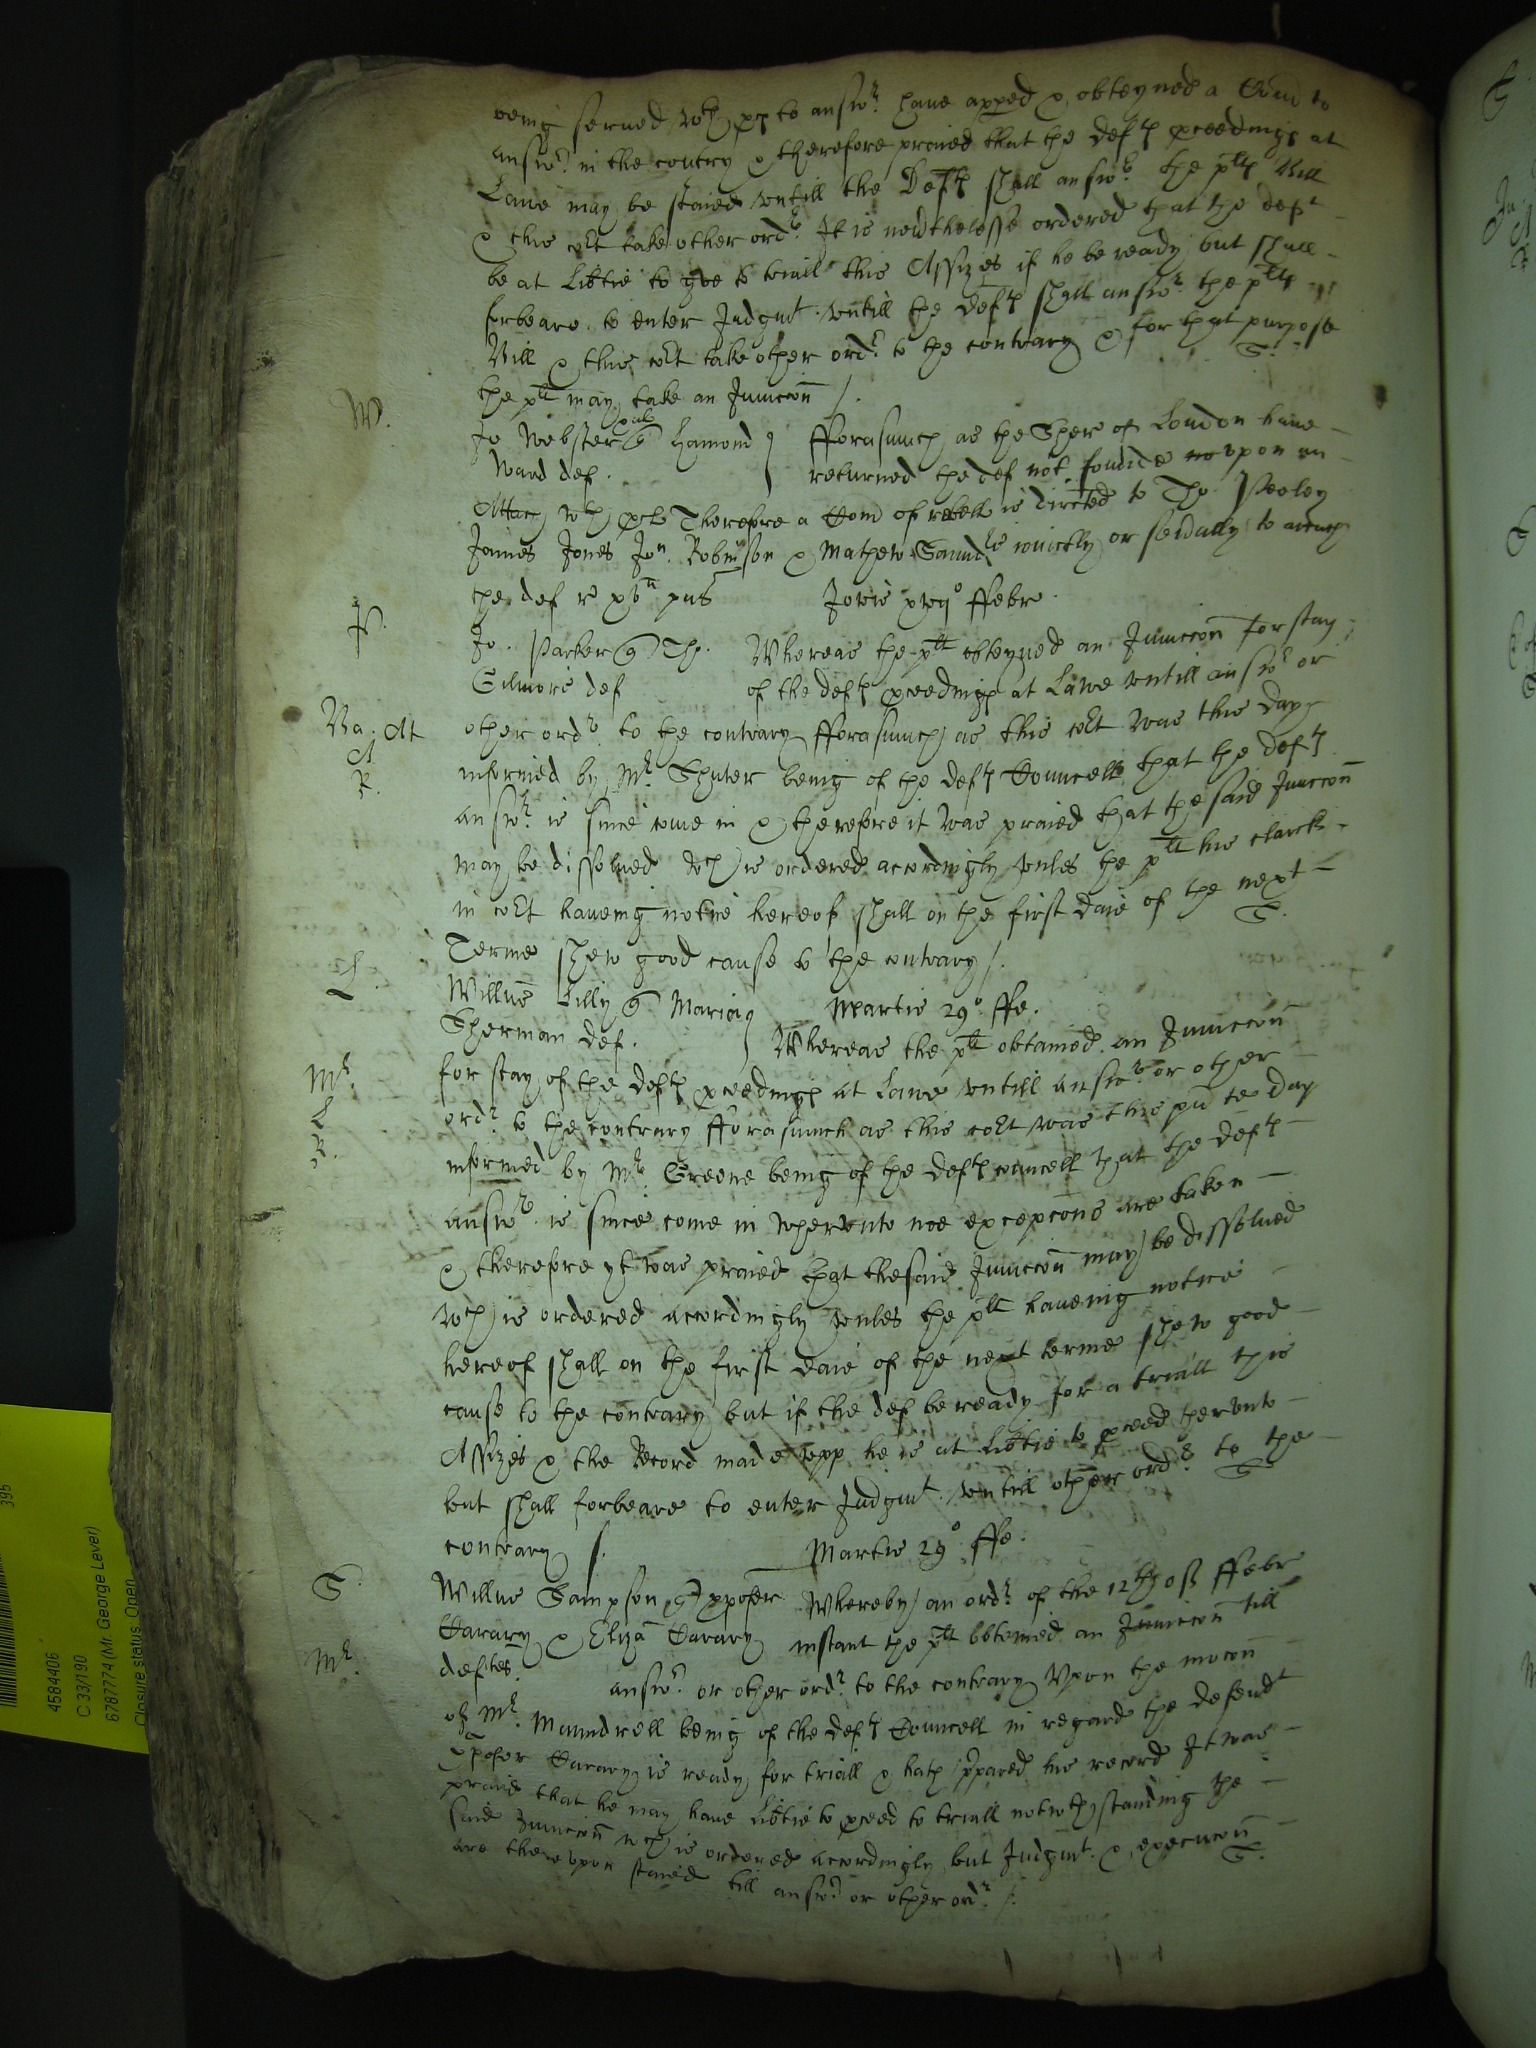 being serued wth pces to answr haue apped & obteyned a Comd to
answr in the contry & therefore praied that the Defts pceedings at
Lawe may be staied vntill the Defts shall answr the plts Bill
& this cort take other ordr It is neuthelesse ordered that the deft
be at libtie to goe to triall this Assizes if he be ready but shall
forbeare to enter Judgmt vntill the Defts shall answr the plts
Bill & this cort take other ordr to the contrary & for that purpose
the plt may take an Juncon /.
S.
W.
Jo Webster pl Hamond
Ward def.
fforasmuch as the Sher of London haue
returned the def not founde vpon an
Attach wth pcl Therefore a Com of rebell is directed to Tho Peeley
James Jones Jon Robinson & Mathew Saundrs ioinctly or seually to attach
the def
Jovis ffebr
P.
Jo. Parker Tho. Whereas the plt obteyned an Juncon for stay
Gilmore def of the defts pceedings at Lawe vntill answr or
Ba: At
other ordr to the contrary fforasmuch as this cort was this day
A
R.
informed by Mr Shuter being of the defts Councell that the defts
answr is since come in & therefore it was praied that the said Juncon
may be dissolued wch is ordered accordingly vnles the plt his clarck
in cort haueing notice hereof shall on the first daie of the next
Terme shew good cause to the contrary /.
S.
L.
Willus Lilly Marion
Sherman def.
Martis 29o ffe.
Whereas the plt obtained an Juncon
Mr.
L
R.
for stay of the defts pceedings at Lawe vntill answr or other
ordr to the contrary fforasmuch as this cort was this pnte day
informed by Mr Greene being of the defts councell that the defts
answr is since come in wherevnto noe excepcons are taken
& therefore yt was praied that the said Juncon may be dissolued
wch is ordered accordingly vnles the plt haueing notice
hereof shall on the first daie of the next terme shew good
cause to the contrary but if the def be ready for a triall this
Assizes & the Record made vpp he is at libtie to pceed therevnto
but shall forbeare to enter Judgmt vntill other ordr to the
contrary /.
S
Martis 29o ffe.
S.
Willus Sampson Xpofer Whereby an ordr of the 12th of ffebr
Cavary & Eliza Cavary instant the plt obteined an Juncon till
Mr.
deftes answr or other ordr to the contrary Vpon the mocon
of Mr. Maundrell being of the defts Councell in regard the defendt
Xpofer Cavary is ready for triall & hath ppared his record It was
praid that he may haue libtie to pceed to triall notwthstanding the
said Juncon wch is ordered accordingly but Judgmt & execucon
are therevpon staied till answr or other ordr /.
S.
395
4584406
C 33/190
6787774 (Mr. George Lever)
Closure status: Open